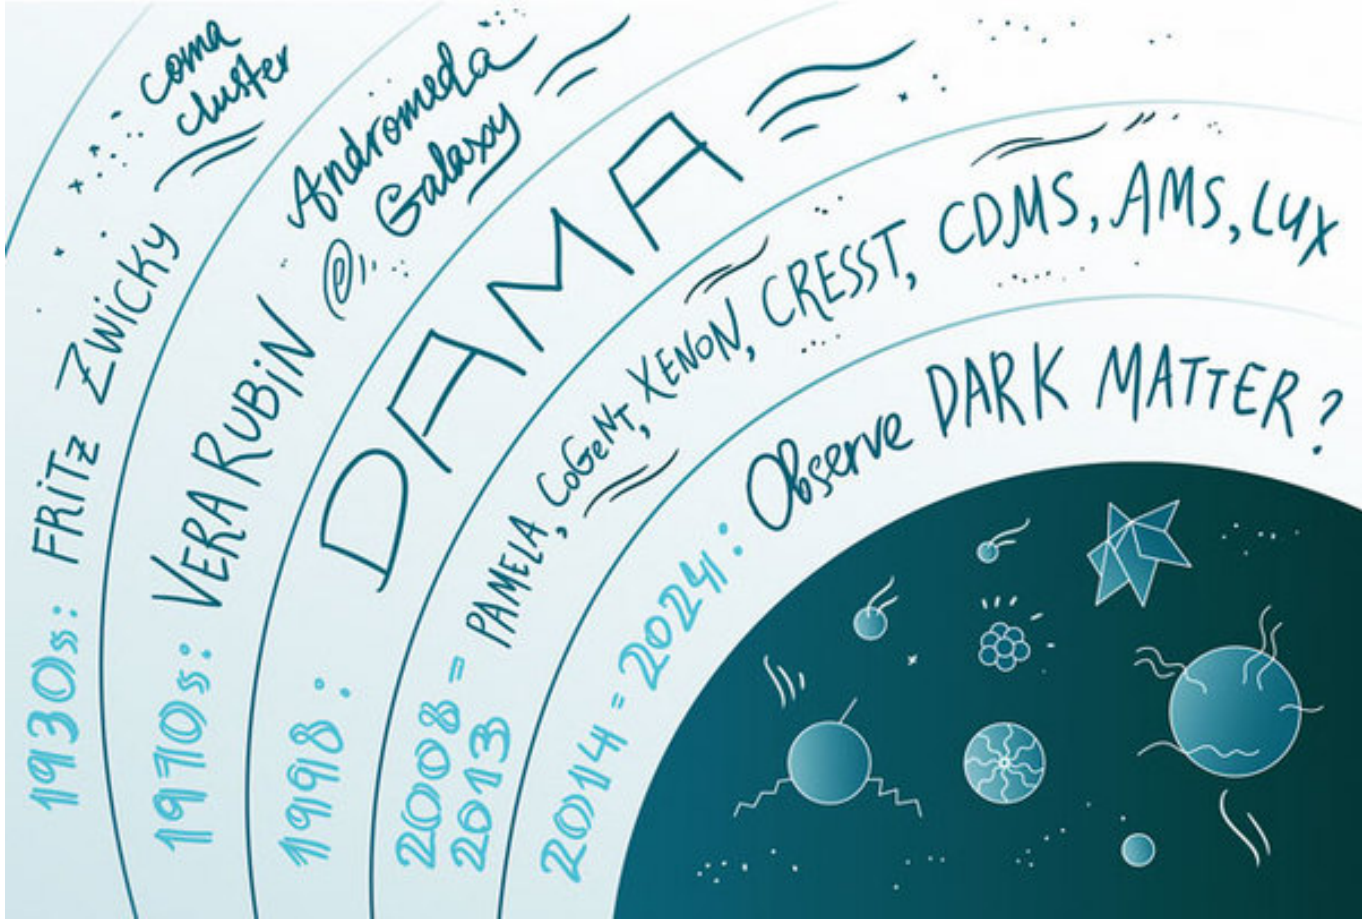 1930s: FRiTz ZWicKy
coma
cluster
1970s: VERA RUBiN @
Andromeda
Galaxy
1998: DAMA
2008 =
2013
PAMELA, CoGeNT, XENON, CRESST, CDMS, AMS, LUX
2014 = 2024: Observe DARK MATTER?